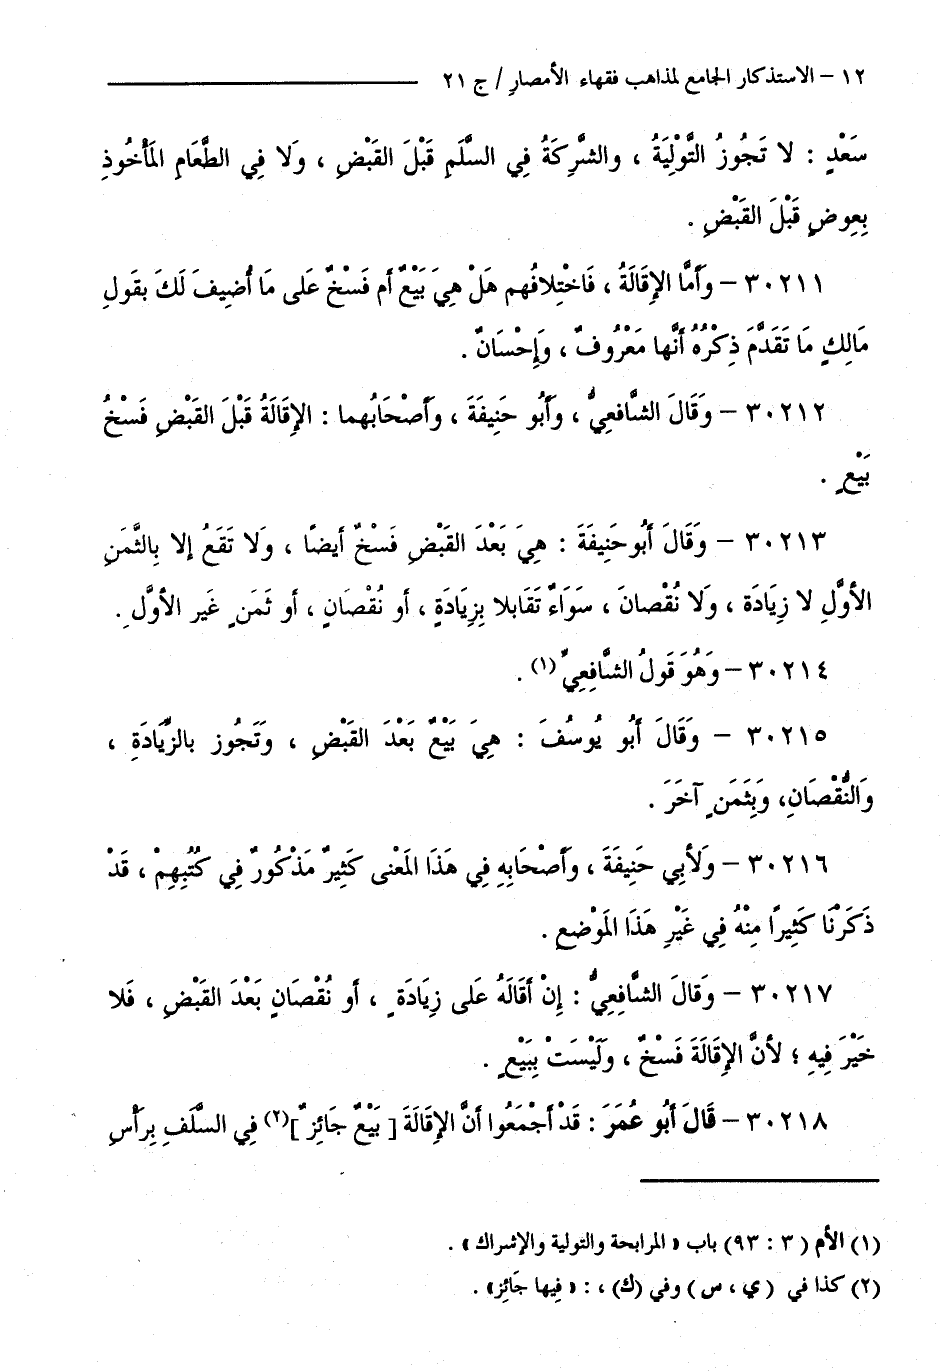 ١٢ – الاستذكار الجامع لمذاهب فقهاء الأمصارِ / ج ٢١
سَعْدٍ : لا تَجُوزُ التَّوْلِيَةُ ، والشَّرِكَةُ فِي السَّلَمِ قَبْلَ القَبْضِ ، وَلا فِي الطَّعَامِ المَأْخُوذِ
بِعِوضٍ قَبْلَ القَبْضِ .
٣٠٢١١ – وَأَمَّا الإِقَالَةُ ، فَاخْتِلافُهم هَلْ هِيَ بَيْعٌ أم فَسْخٌ عَلى مَا أُضِيفَ لَكَ بقَولِ
مَالِكٍ مَا تَقَدَّمَ ذِكْرُهُ أنَّها مَعْرُوفٌ ، وَإِحْسَانٌ .
٣٠٢١٢ – وَقَالَ الشَّافعِيُّ ، وَأَبُو حَنِيفَةَ ، وَأَصْحَابُهما : الإِقَالَةُ قَبْلَ القَبْضِ فَسْخُ
بَيْعٍ .
٣٠٢١٣ – وَقَالَ أَبُو حَنِيفَةَ : هِيَ بَعْدَ القَبْضِ فَسْخٌ أيضًا ، وَلا تَقَعُ إلا بِالثَّمَنِ
الأوَّلِ لا زِيَادَة ، وَلا نُقْصانَ ، سَوَاءٌ تَقَابلا بِزِيَادَةٍ ، أو نُقْصَانٍ ، أو ثَمَنٍ غَير الأوَّلِ .
٣٠٢١٤ – وَهُوَ قَولُ الشَّافِعِيِّ (١) .
٣٠٢١٥ – وَقَالَ أَبُو يُوسُفَ : هِيَ بَيْعٌ بَعْدَ القَبْضِ ، وَتَجُوز بالزِّيَادَةِ ،
وَالنُّقْصَانِ، وَبِثَمَنٍ آخَرَ .
٣٠٢١٦ – وَلأبِي حَنِيفَةَ ، وَأَصْحَابِهِ فِي هَذَا المَعْنى كَثِيرٌ مَذْكُورٌ فِي كُتُبِهِمْ ، قَدْ
ذَكَرْنَا كَثِيرًا مِنْهُ فِي غَيْرِ هَذَا المَوْضعِ .
٣٠٢١٧ – وَقالَ الشَّافِعِيُّ : إِنْ أَقَالَهُ عَلى زِيَادَةٍ ، أو نُقْصَانٍ بَعْدَ القَبْضِ ، فَلا
خَيْرَ فِيهِ ؛ لأنَّ الإِقَالَةَ فَسْخٌ ، وَلَيْسَتْ بِبَيْعٍ .
٣٠٢١٨ – قَالَ أَبُو عُمَرَ : قَدْ أجْمَعُوا أنَّ الإِقَالَةَ [ بَيْعٌ جَائِزٌ ](٢) فِي السَّلَفِ بِرَأسِ
(١) الأم (٣ : ٩٣) باب « المرابحة والتولية والإشراك » .
(٢) كذا في (ي ، س) وفي (ك) ، : « فِيها جَائِز» .